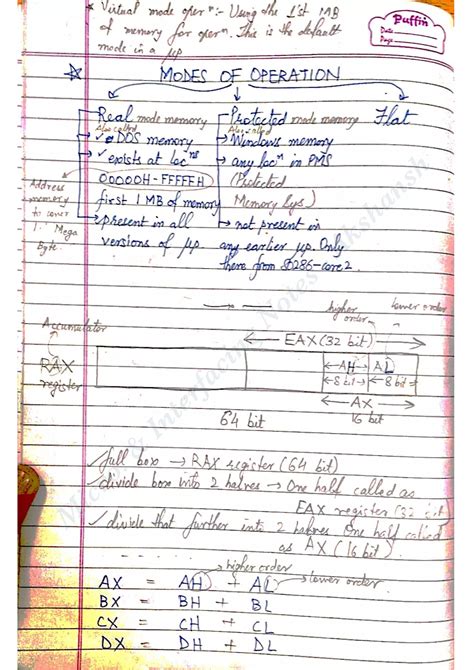 * Virtual mode opern :- Using the 1st MB
of memory for opern. This is the default
mode in a μp.
Puffin
Date
Page
MODES OF OPERATION
Real mode memory
Protected mode memory
Flat
Also called
DOS memory
Also called
Windows memory
exists at locn
any locn in PMS
00000H-FFFFFH
(Protected
Address
memory
to cover
1 Mega
Byte
first 1 MB of memory
Memory Sys)
present in all
versions of μp
not present in
any earlier μp. Only
there from 80286-core2.
higher
order
lower order
Accumulator
EAX (32 bit)
RAX
register
AH
AL
8 bit
8 bit
AX
16 bit
64 bit
full box → RAX register (64 bit)
divide box into 2 halves → One half called as
EAX register (32 bit)
divide that further into 2 halves One half called
as AX (16 bit)
higher order
AX = AH + AL
lower order
BX = BH + BL
CX = CH + CL
DX = DH + DL
Micro & Interfacing Notes Akshansh